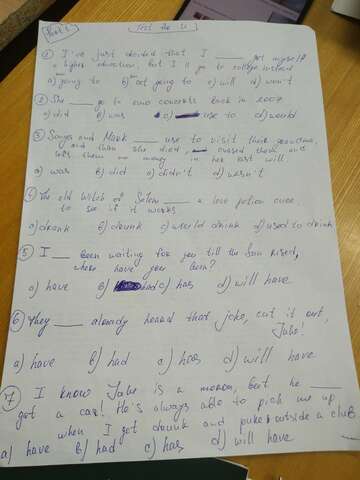 Part 1
Test the II
① I've just decided that I ___ get myself
a higher education, but I'll go to college instead
a) going to b) not going to c) will d) won't
② She ___ go to emo concerts back in 2007
a) did b) was c) use to d) would
3 Sonya and Mark ___ use to visit their grandma,
and then she died, cursed them and
left them no money in her last will
a) was b) did c) didn't d) wasn't
④ The old witch of Salem ___ a love potion once,
to see if it works
a) drank b) drunk c) would drink d) used to drink
5 I ___ been waiting for you till the sun rised,
where have you been?
a) have b) had c) has d) will have
6) They ___ already heard that joke, cut it out,
Jake!
a) have b) had c) has d) will have
7 I know Jake is a moron, but he ___
got a car! He's always able to pick me up
when I got drunk and puked outside a club
a) have b) had c) has d) will have